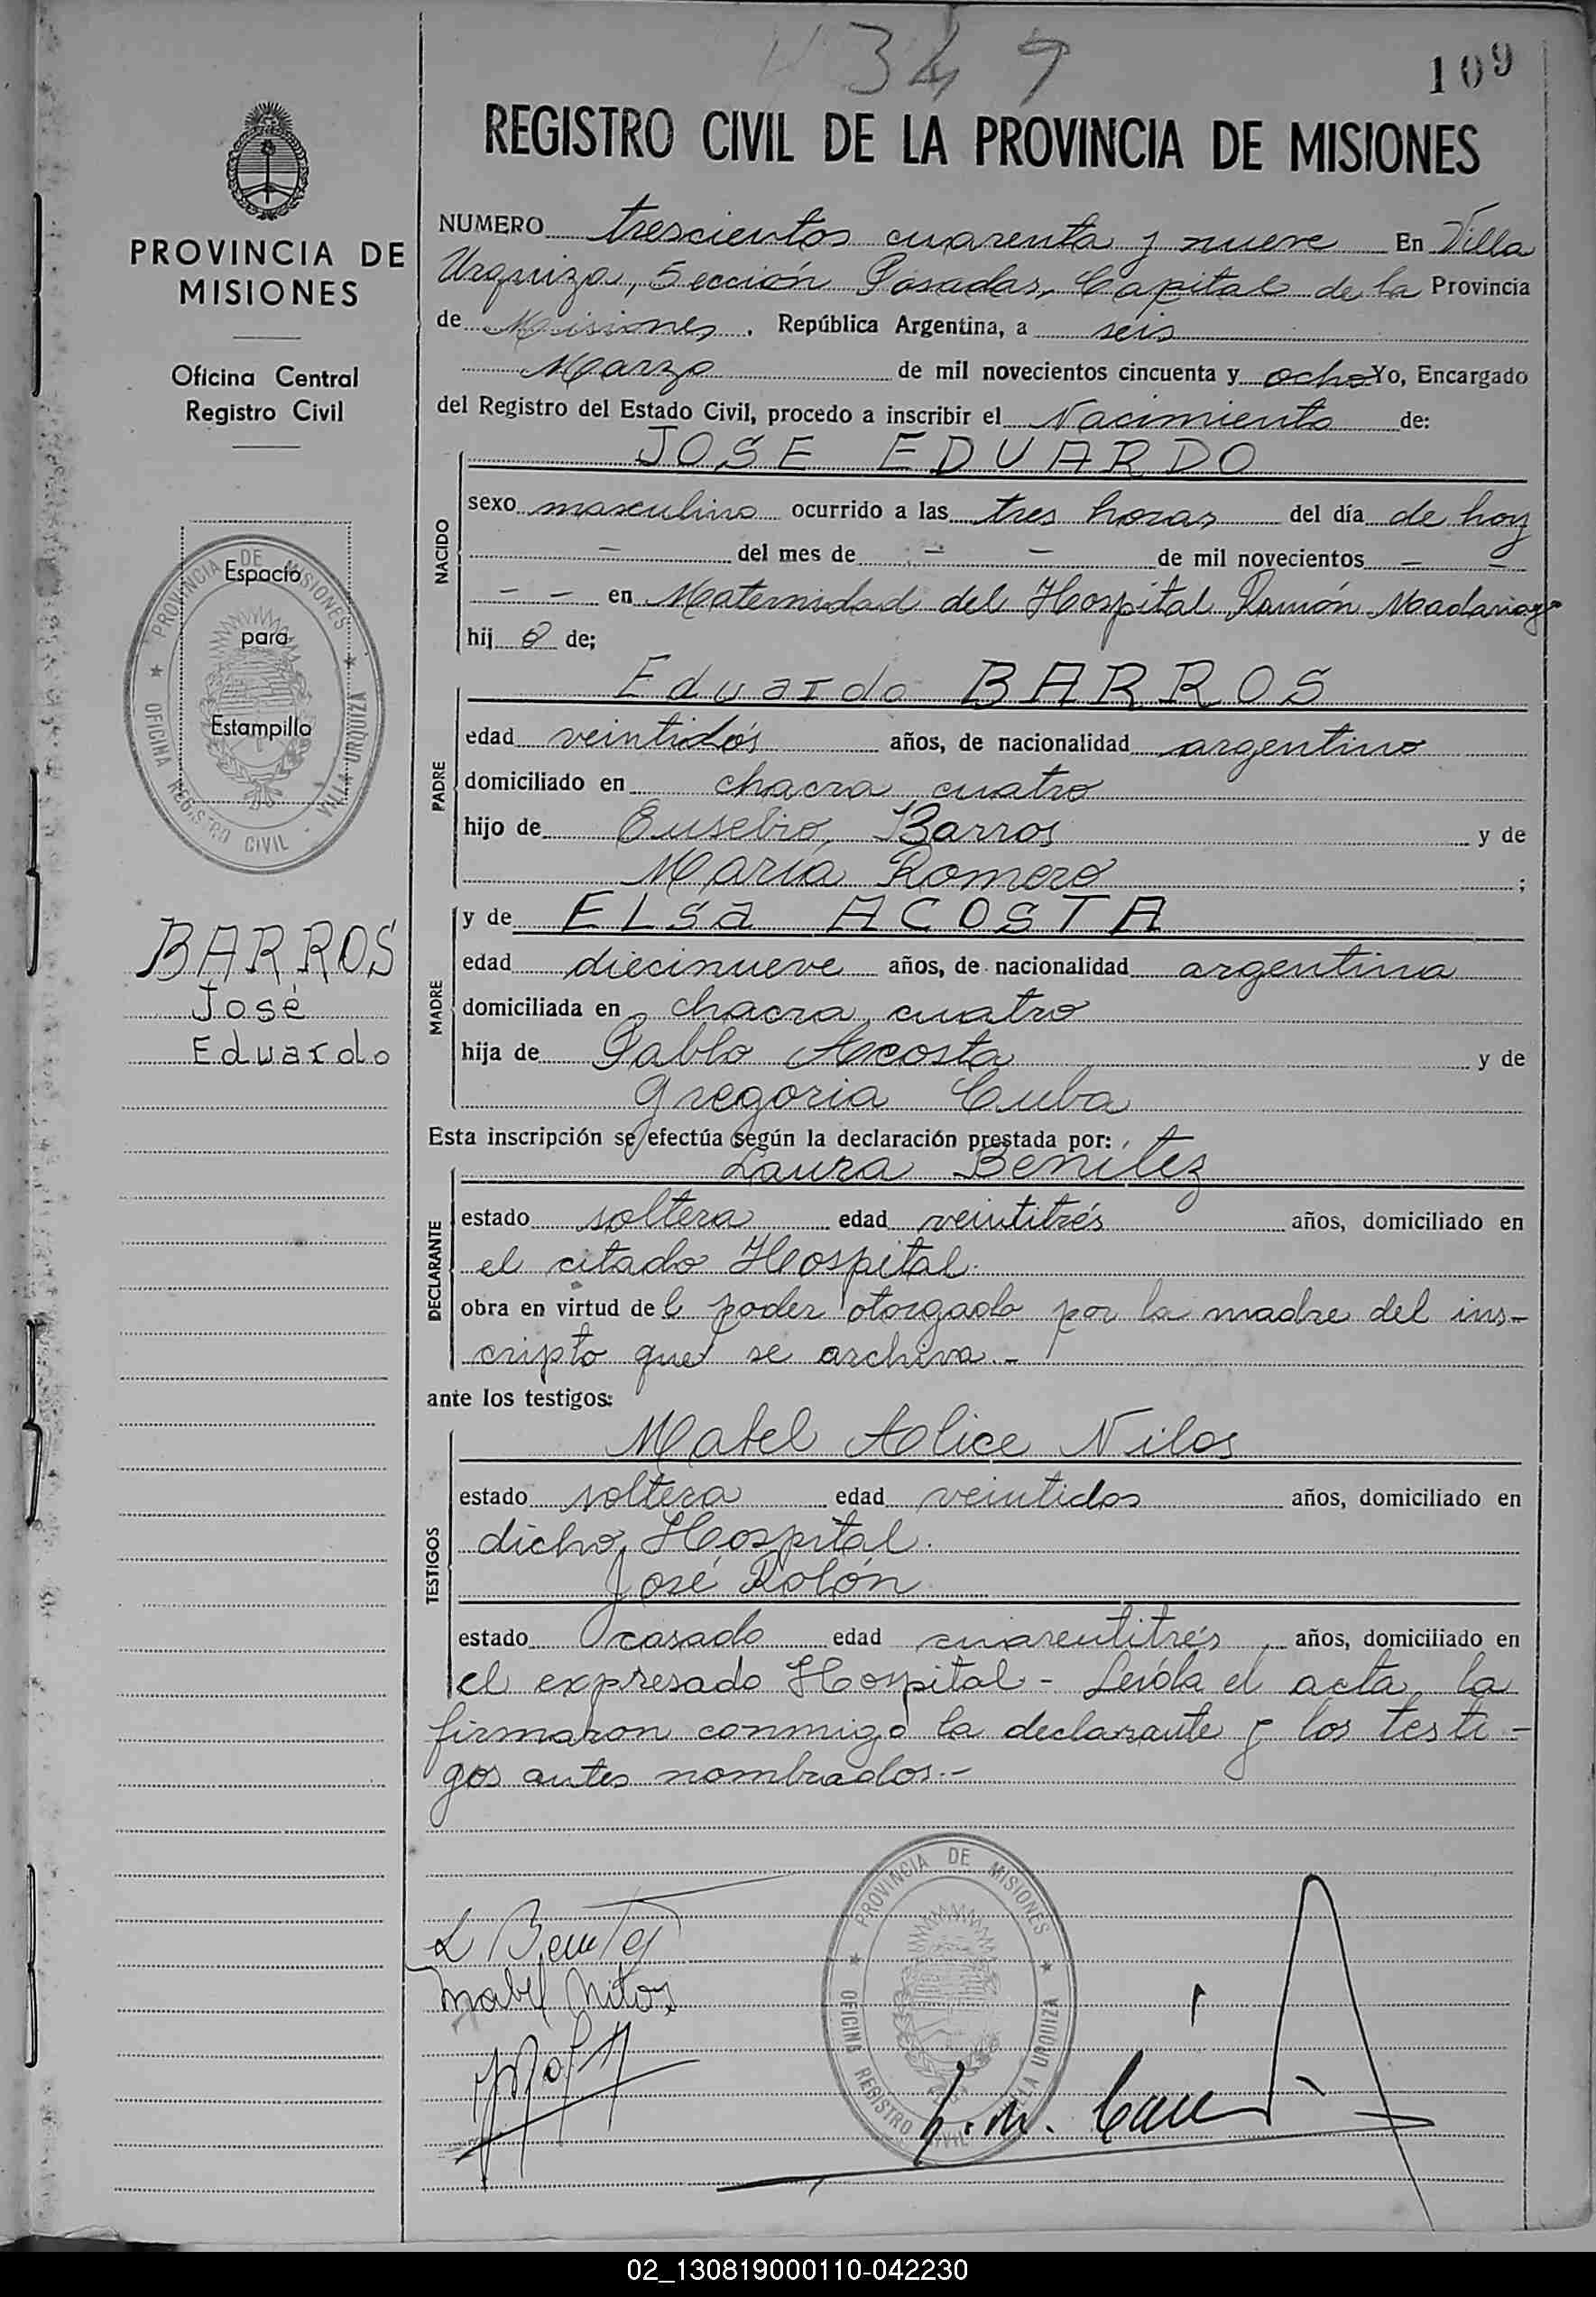 349
109
REGISTRO CIVIL DE LA PROVINCIA DE MISIONES
PROVINCIA DE
MISIONES
Oficina Central
Registro Civil
PROVINCIA DE MISIONES
OFICINA REGISTRO CIVIL - VILLA URQUIZA
Espacio
para
Estampilla
BARROS
José
Eduardo
NUMERO trescientos cuarenta y nueve En Villa
Urquiza, Sección Posadas, Capital de la Provincia
de Misiones. República Argentina, a seis
Marzo de mil novecientos cincuenta y ocho Yo, Encargado
del Registro del Estado Civil, procedo a inscribir el Nacimiento de:
NACIDO
JOSE EDUARDO
sexo masculino ocurrido a las tres horas del día de hoy
- del mes de - - de mil novecientos - -
- - en Maternidad del Hospital Ramón Madariaga
hij o de;
PADRE
Eduardo BARROS
edad veintidós años, de nacionalidad argentino
domiciliado en chacra cuatro
hijo de Eusebio Barros y de
María Romero ;
MADRE
y de ELSa ACOSTA
edad diecinueve años, de nacionalidad argentina
domiciliada en chacra cuatro
hija de Pablo Acosta y de
Gregoria Cuba
Esta inscripción se efectúa según la declaración prestada por:
DECLARANTE
Laura Benítez
estado soltera edad veintitrés años, domiciliado en
el citado Hospital.
obra en virtud de l poder otorgado por la madre del ins-
cripto que se archiva.-
ante los testigos:
TESTIGOS
Mabel Alice Nilos
estado soltera edad veintidos años, domiciliado en
dicho Hospital.
José Rolón
estado casado edad cuarentitrés años, domiciliado en
el expresado Hospital - Leída el acta, la
firmaron conmigo la declarante y los testi-
gos antes nombrados.-
L Benitez
Mabel Nilos
PROVINCIA DE MISIONES
OFICINA REGISTRO CIVIL VILLA URQUIZA
02_130819000110-042230